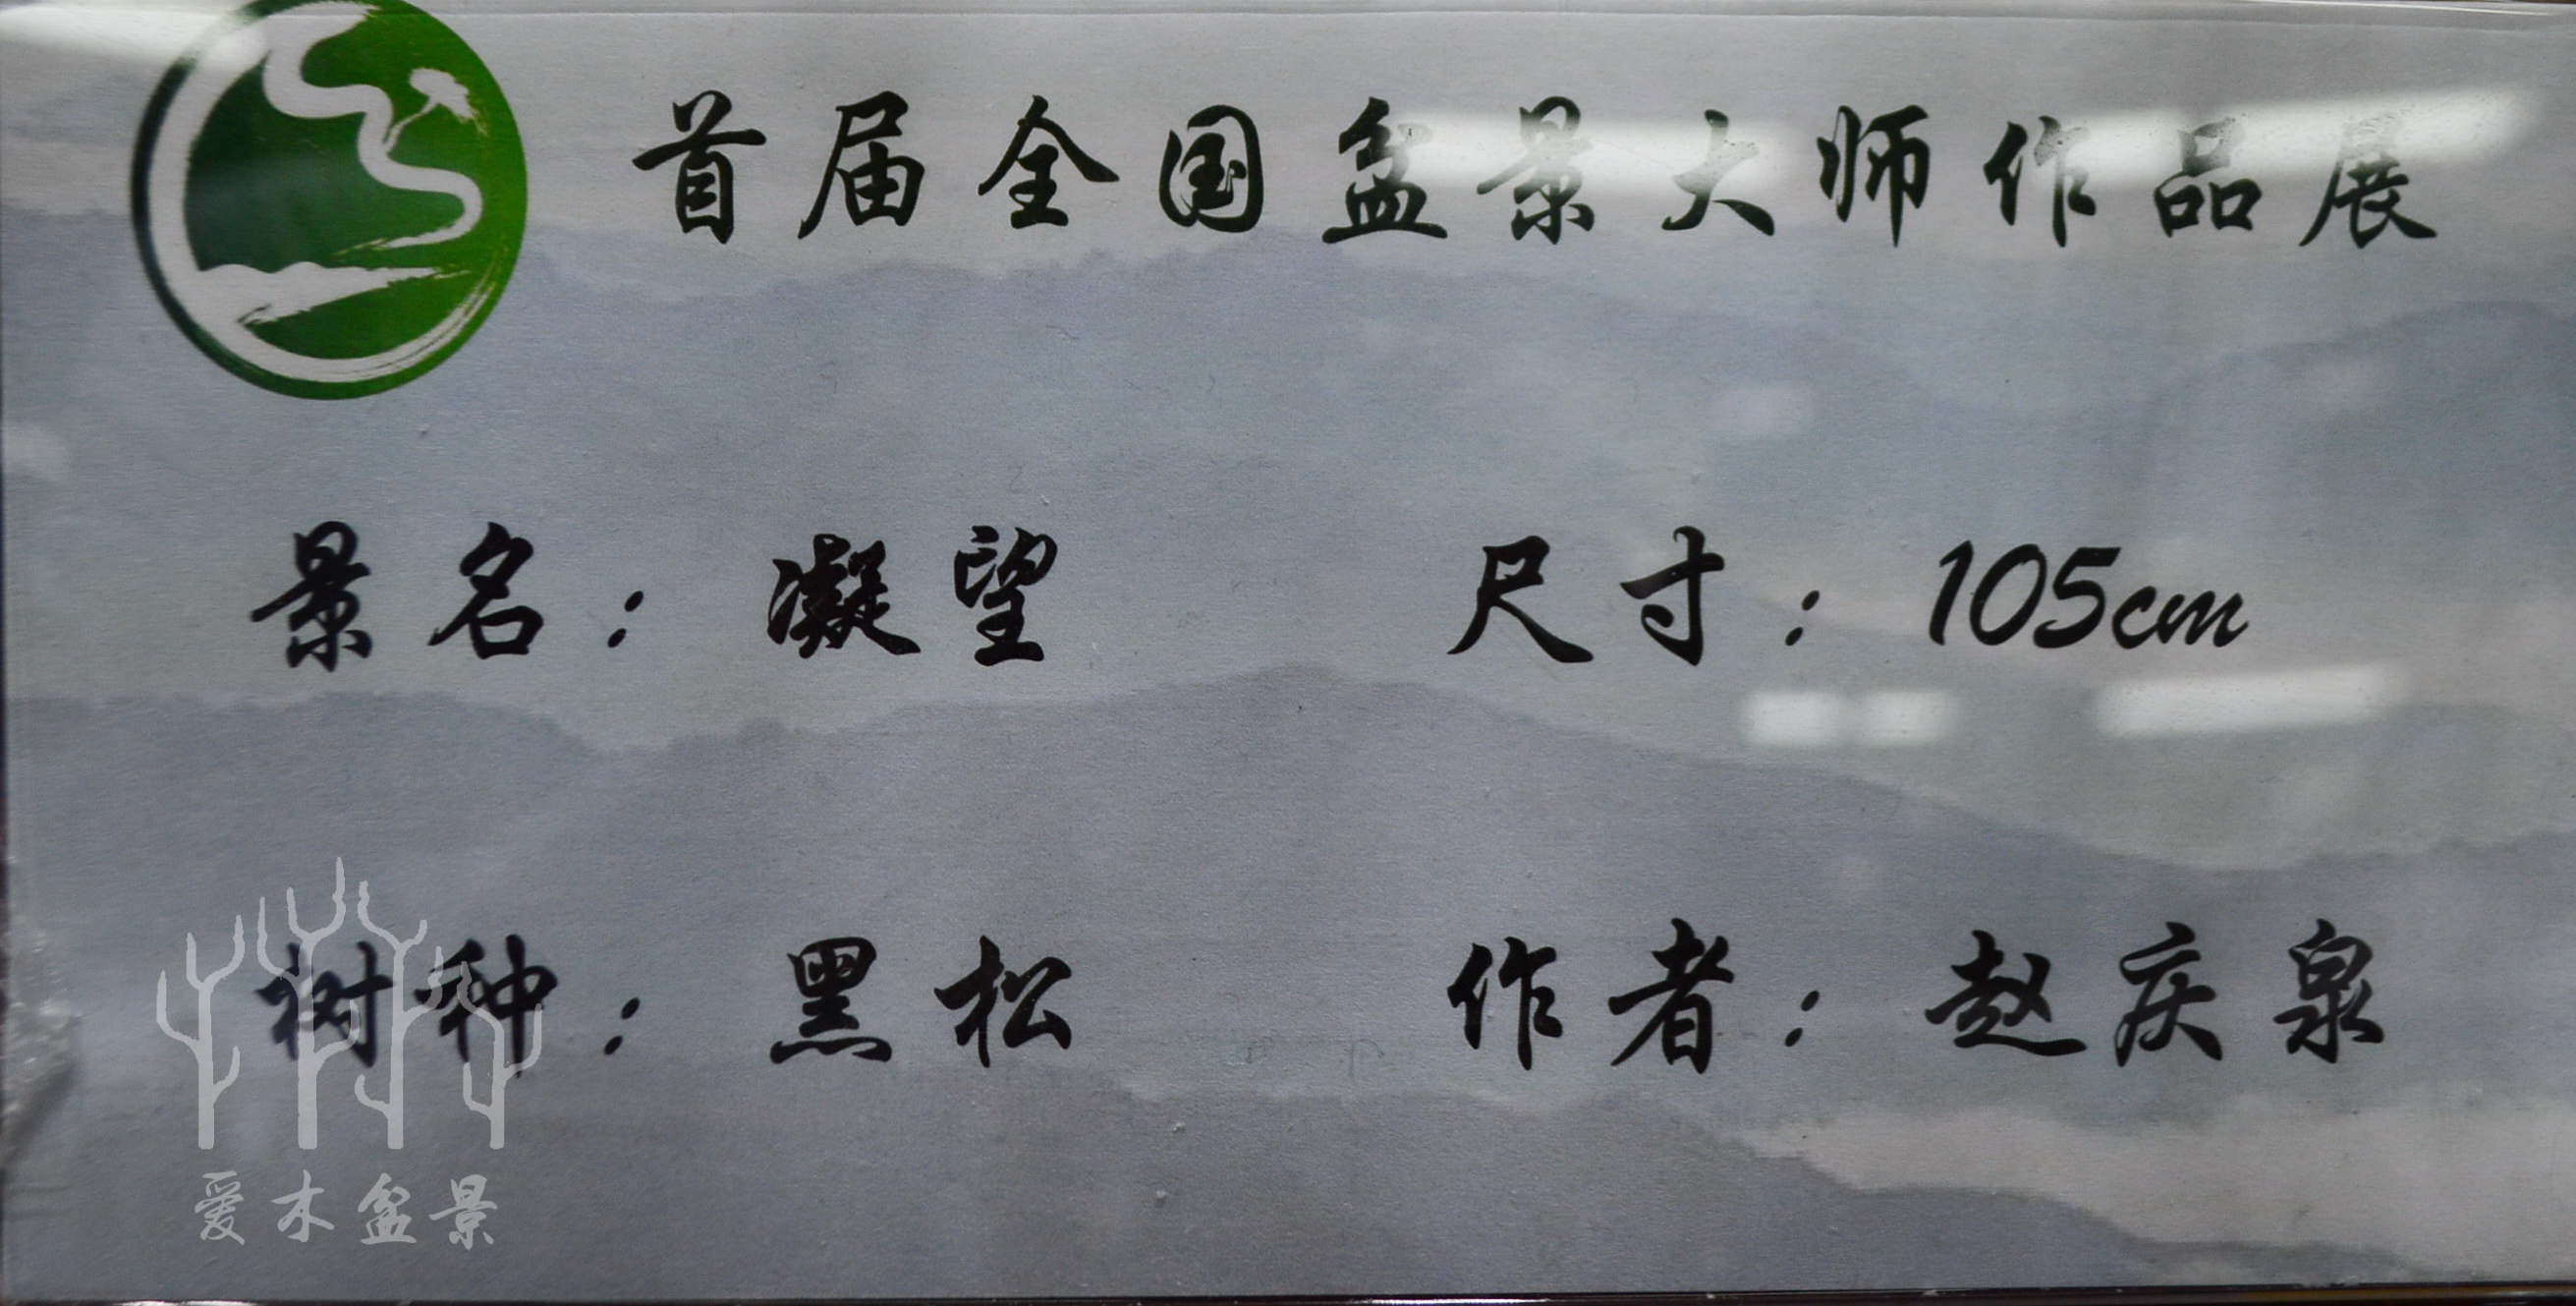 首届全国盆景大师作品展
景名：凝望 尺寸：105cm
树种：黑松 作者：赵庆泉
爱木盆景